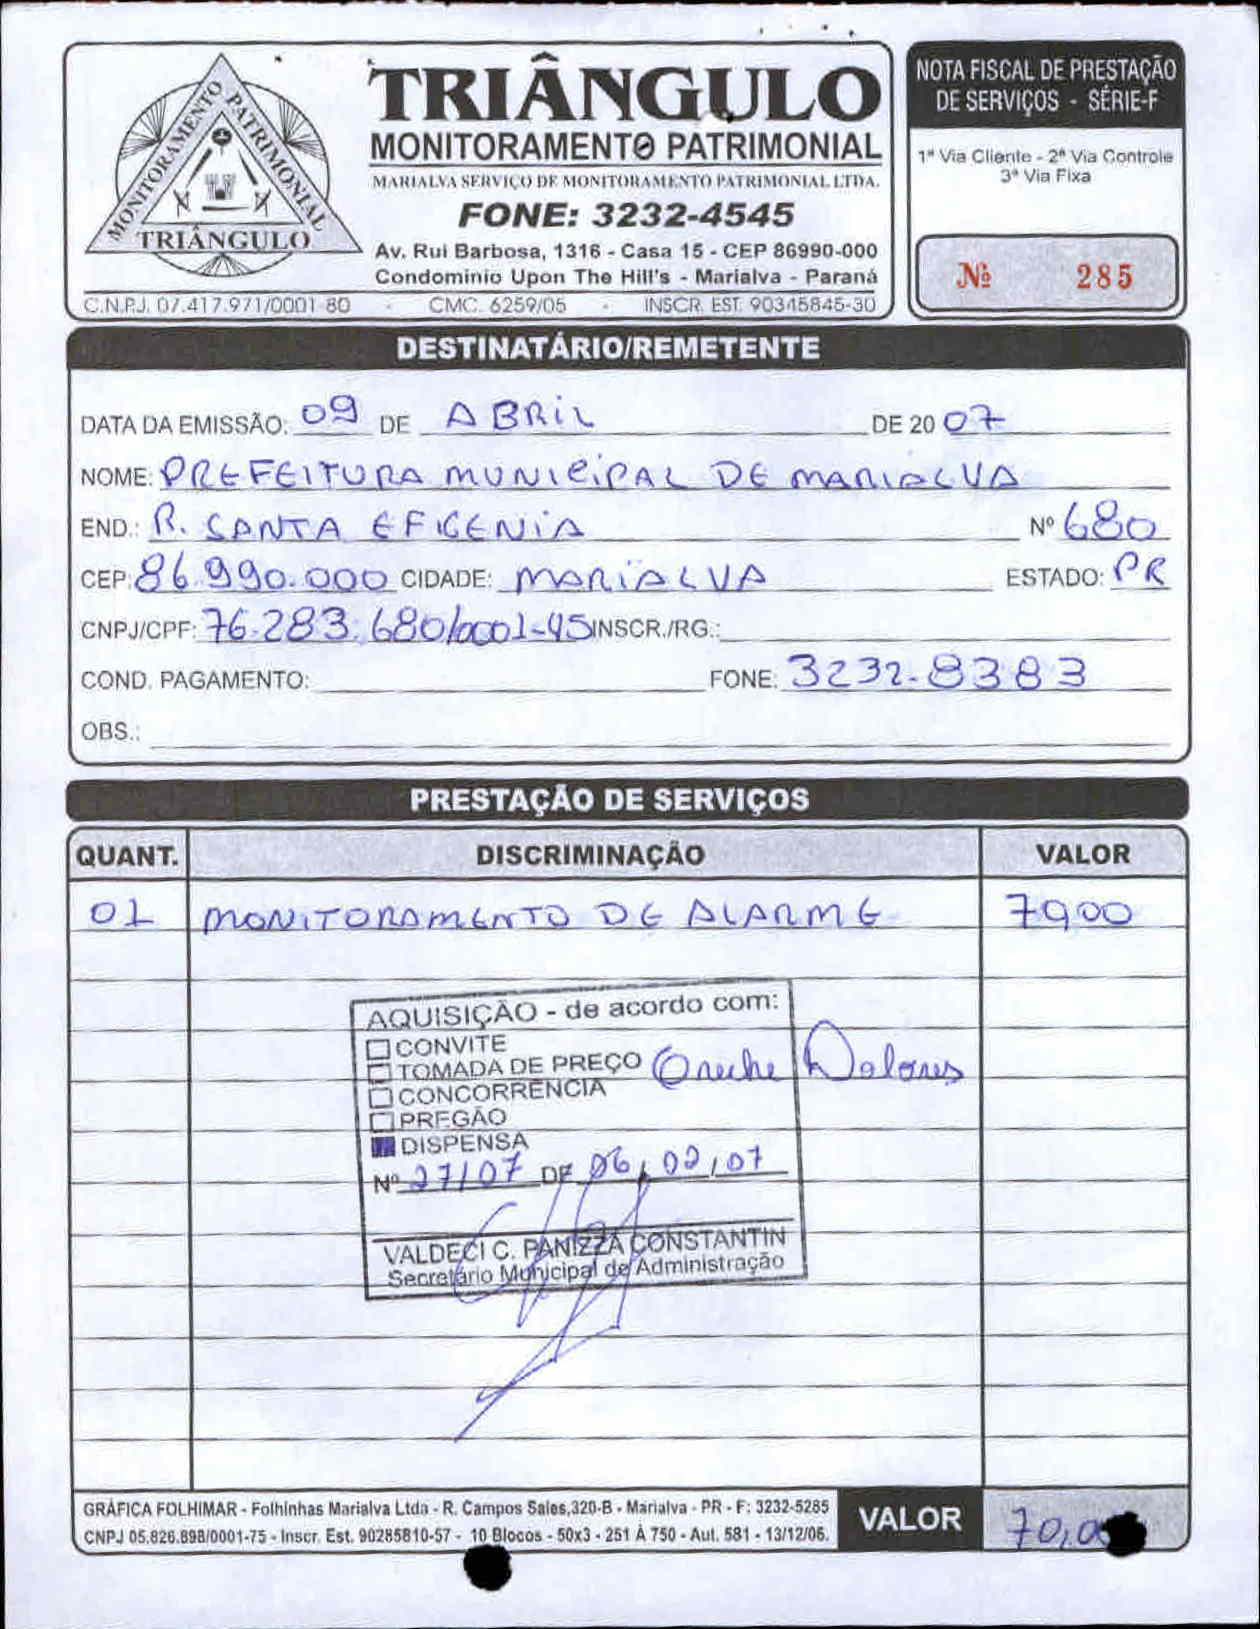 MONITORAMENTO PATRIMONIAL
TRIÂNGULO
TRIÂNGULO
MONITORAMENTO PATRIMONIAL
MARIALVA SERVIÇO DE MONITORAMENTO PATRIMONIAL LTDA.
FONE: 3232-4545
Av. Rui Barbosa, 1316 - Casa 15 - CEP 86990-000
Condominio Upon The Hill's - Marialva - Paraná
C.N.P.J. 07.417.971/0001-80 - CMC. 6259/05 - INSCR. EST. 90345845-30
NOTA FISCAL DE PRESTAÇÃO
DE SERVIÇOS - SÉRIE-F
1ª Via Cliente - 2ª Via Controle
3ª Via Fixa
Nº 285
DESTINATÁRIO/REMETENTE
DATA DA EMISSÃO: 09 DE ABRIL DE 2007
NOME: PREFEITURA MUNICIPAL DE MARIALVA
END.: R. SANTA EFIGENIA Nº 680
CEP: 86.990.000 CIDADE: MARIALVA ESTADO: PR
CNPJ/CPF: 76.283.680/0001-45 INSCR./RG.:
COND. PAGAMENTO: FONE: 3232-8383
OBS.:
PRESTAÇÃO DE SERVIÇOS
QUANT. DISCRIMINAÇÃO VALOR
01 MONITORAMENTO DE ALARME 7000
AQUISIÇÃO - de acordo com:
CONVITE
TOMADA DE PREÇO
CONCORRÊNCIA
PREGÃO
DISPENSA
Dolores
Nº 27/07 DE 06/02/07
VALDECI C. PANIZZA CONSTANTIN
Secretário Municipal de Administração
GRÁFICA FOLHIMAR - Folhinhas Marialva Ltda - R. Campos Sales,320-B - Marialva - PR - F: 3232-5285
CNPJ 05.826.898/0001-75 - Inscr. Est. 90285810-57 - 10 Blocos - 50x3 - 251 À 750 - Aut. 581 - 13/12/06.
VALOR 70,0